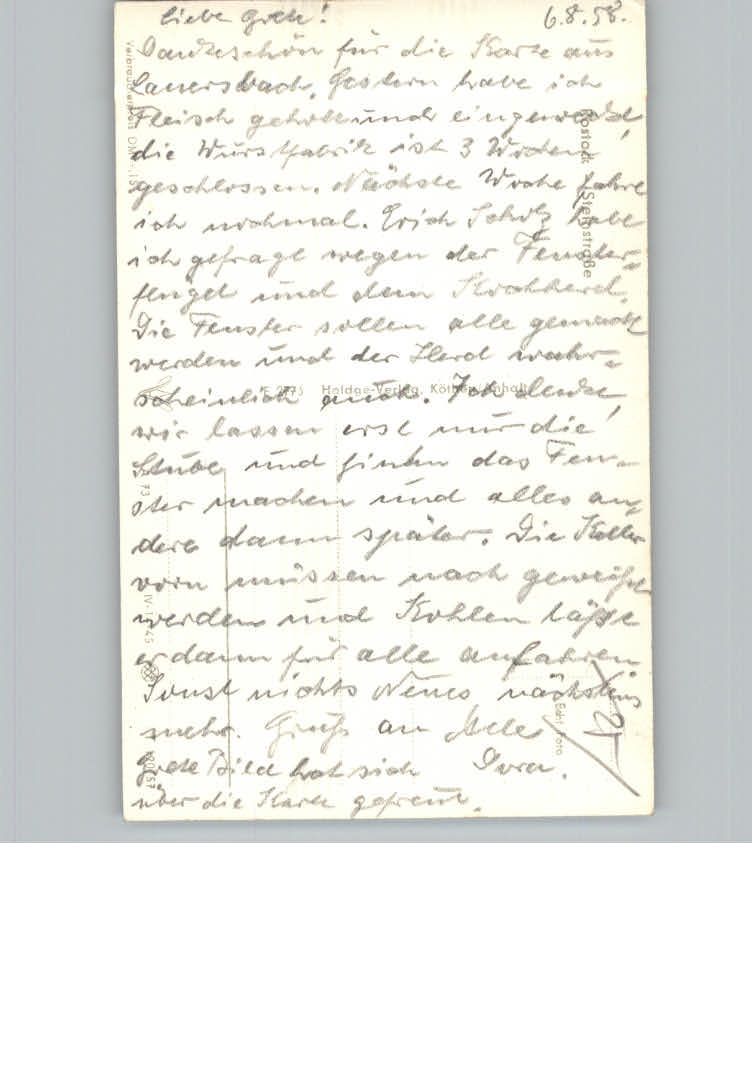 Liebe Grete!          6.8.58.
Dankeschön für die Karte aus
Lauersbach. Gestern habe ich
Fleisch geholt und eingeweckt,
die Wurstfabrik ist 3 Wochen
geschlossen. Nächste Woche fahre
ich nochmal. Erich Scholz habe
ich gefragt wegen der Fenster=
flügel und dem Kochherd.
Die Fenster sollen alle gemacht
werden und der Herd wahr=
scheinlich auch. Ich denke,
wir lassen erst nur die
Stube und hinten das Fen=
ster machen und alles an=
dere dann später. Die Keller
vorn müssen noch geweißt
werden und Kohlen läßt
er dann für alle anfahren
Sonst nichts Neues nächstens
mehr. Gruß an Alle
Grete Bild hat sich
über die Karte gefreut.
Rostock
Steinstraße
Heldge-Verlag, Köthen/Anhalt
Echt Foto
IV-14-45
73